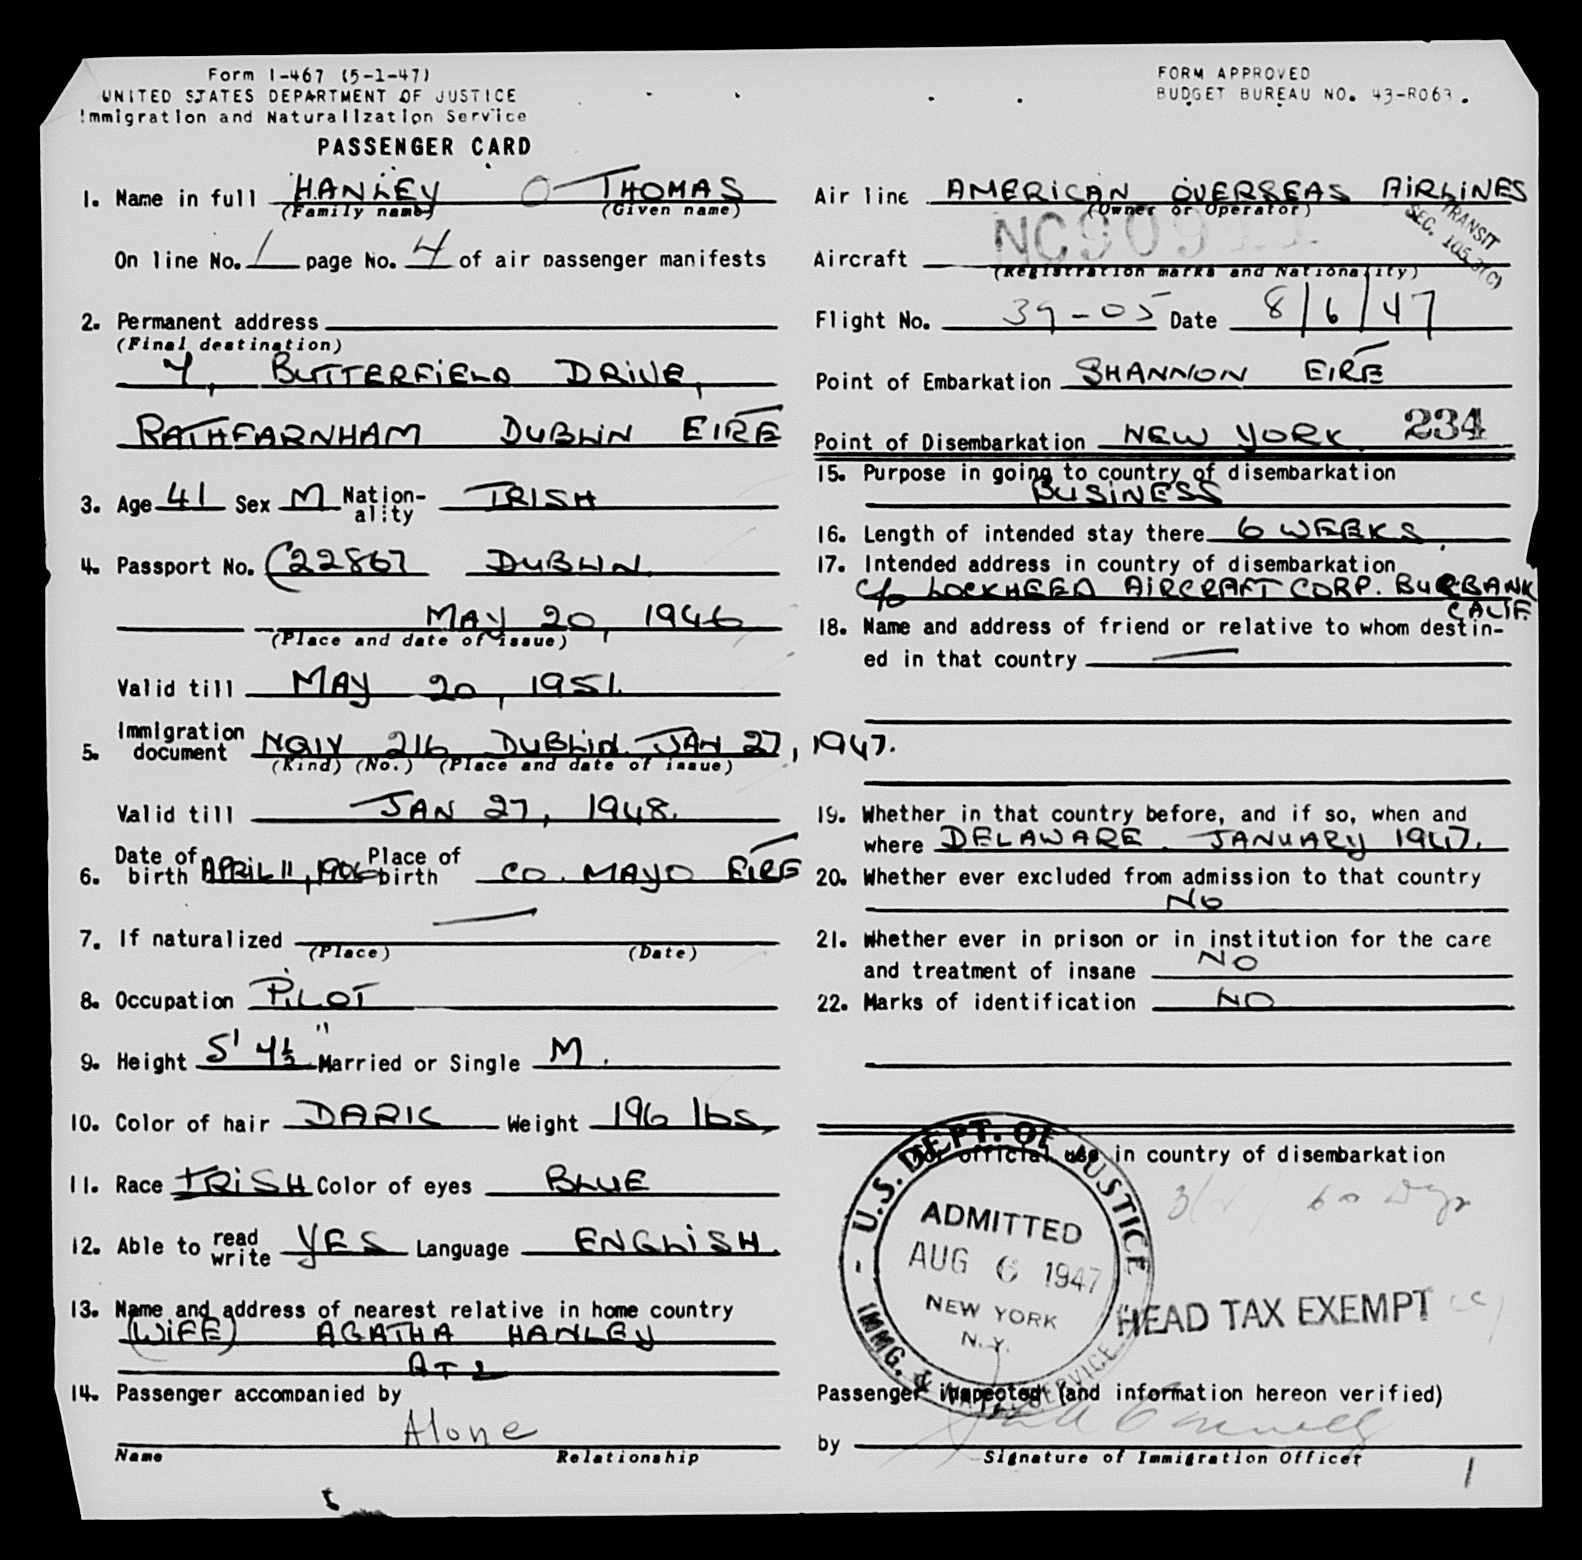 Form I-467 (5-1-47)
UNITED STATES DEPARTMENT OF JUSTICE
Immigration and Naturalization Service
PASSENGER CARD
FORM APPROVED
BUDGET BUREAU NO. 43-R063.
1. Name in full HANLEY O THOMAS
(Family name) (Given name)
On line No. 1 page No. 4 of air passenger manifests
2. Permanent address
(Final destination)
7, BUTTERFIELD DRIVE,
RATHFARNHAM DUBLIN EIRE
3. Age 41 Sex M Nation-ality IRISH
4. Passport No. C22867 DUBLIN
MAY 20, 1946
(Place and date of issue)
Valid till MAY 20, 1951.
5. Immigration document NQIV 216 DUBLIN. JAN 27, 1947.
(Kind) (No.) (Place and date of issue)
Valid till JAN 27, 1948.
6. Date of birth APRIL 11, 1906 Place of birth CO. MAYO EIRE
7. If naturalized —
(Place) (Date)
8. Occupation PILOT
9. Height 5' 4½" Married or Single M.
10. Color of hair DARK Weight 196 lbs.
11. Race IRISH Color of eyes BLUE
12. Able to read write YES Language ENGLISH.
13. Name and address of nearest relative in home country
(WIFE) AGATHA HANLEY
AT 2
14. Passenger accompanied by
Alone
Name Relationship
Air line AMERICAN OVERSEAS AIRLINES
(Owner or Operator)
TRANSIT
SEC. 105.3(C)
Aircraft NC90911
(Registration marks and Nationality)
Flight No. 39-05 Date 8/6/47
Point of Embarkation SHANNON EIRE
Point of Disembarkation NEW YORK 234
15. Purpose in going to country of disembarkation
BUSINESS
16. Length of intended stay there 6 WEEKS.
17. Intended address in country of disembarkation
c/o LOCKHEED AIRCRAFT CORP. BURBANK
CALIF.
18. Name and address of friend or relative to whom destin-
ed in that country —
19. Whether in that country before, and if so, when and
where DELAWARE. JANUARY 1947.
20. Whether ever excluded from admission to that country
NO
21. Whether ever in prison or in institution for the care
and treatment of insane NO
22. Marks of identification NO
For official use in country of disembarkation
60 Days
U.S. DEPT. OF JUSTICE
ADMITTED
AUG 6 1947
NEW YORK
N.Y.
IMMG. & NATZ. SERVICE
HEAD TAX EXEMPT
Passenger inspected (and information hereon verified)
by
Signature of Immigration Officer
1